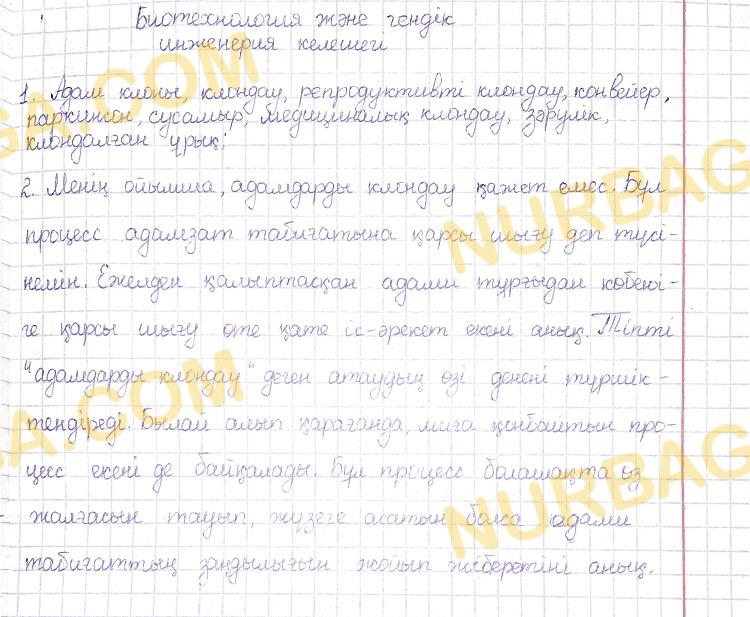 Биотехнология және гендік
инженерия келешегі
1. Адам клоны, клондау, репродуктивті клондау, конвейер,
паркинсон, сусамыр, медициналық клондау, зәрулік,
клондалған ұрық;
2. Менің ойымша, адамдарды клондау қажет емес. Бұл
процесс адамзат табиғатына қарсы шығу деп түсі-
немін. Ежелден қалыптасқан адами тұрғыдан көбею-
ге қарсы шығу өте қате іс-әрекет екені анық. Тіпті
"адамдарды клондау" деген атаудың өзі денені түршік-
тендіреді. Былай алып қарағанда, миға қонбайтын про-
цесс екені де байқалады. Бұл процесс болашақта өз
жалғасын тауып, жүзеге асатын болса адами
табиғаттың заңдылығын жойып жіберетіні анық.
NURBAGA.COM